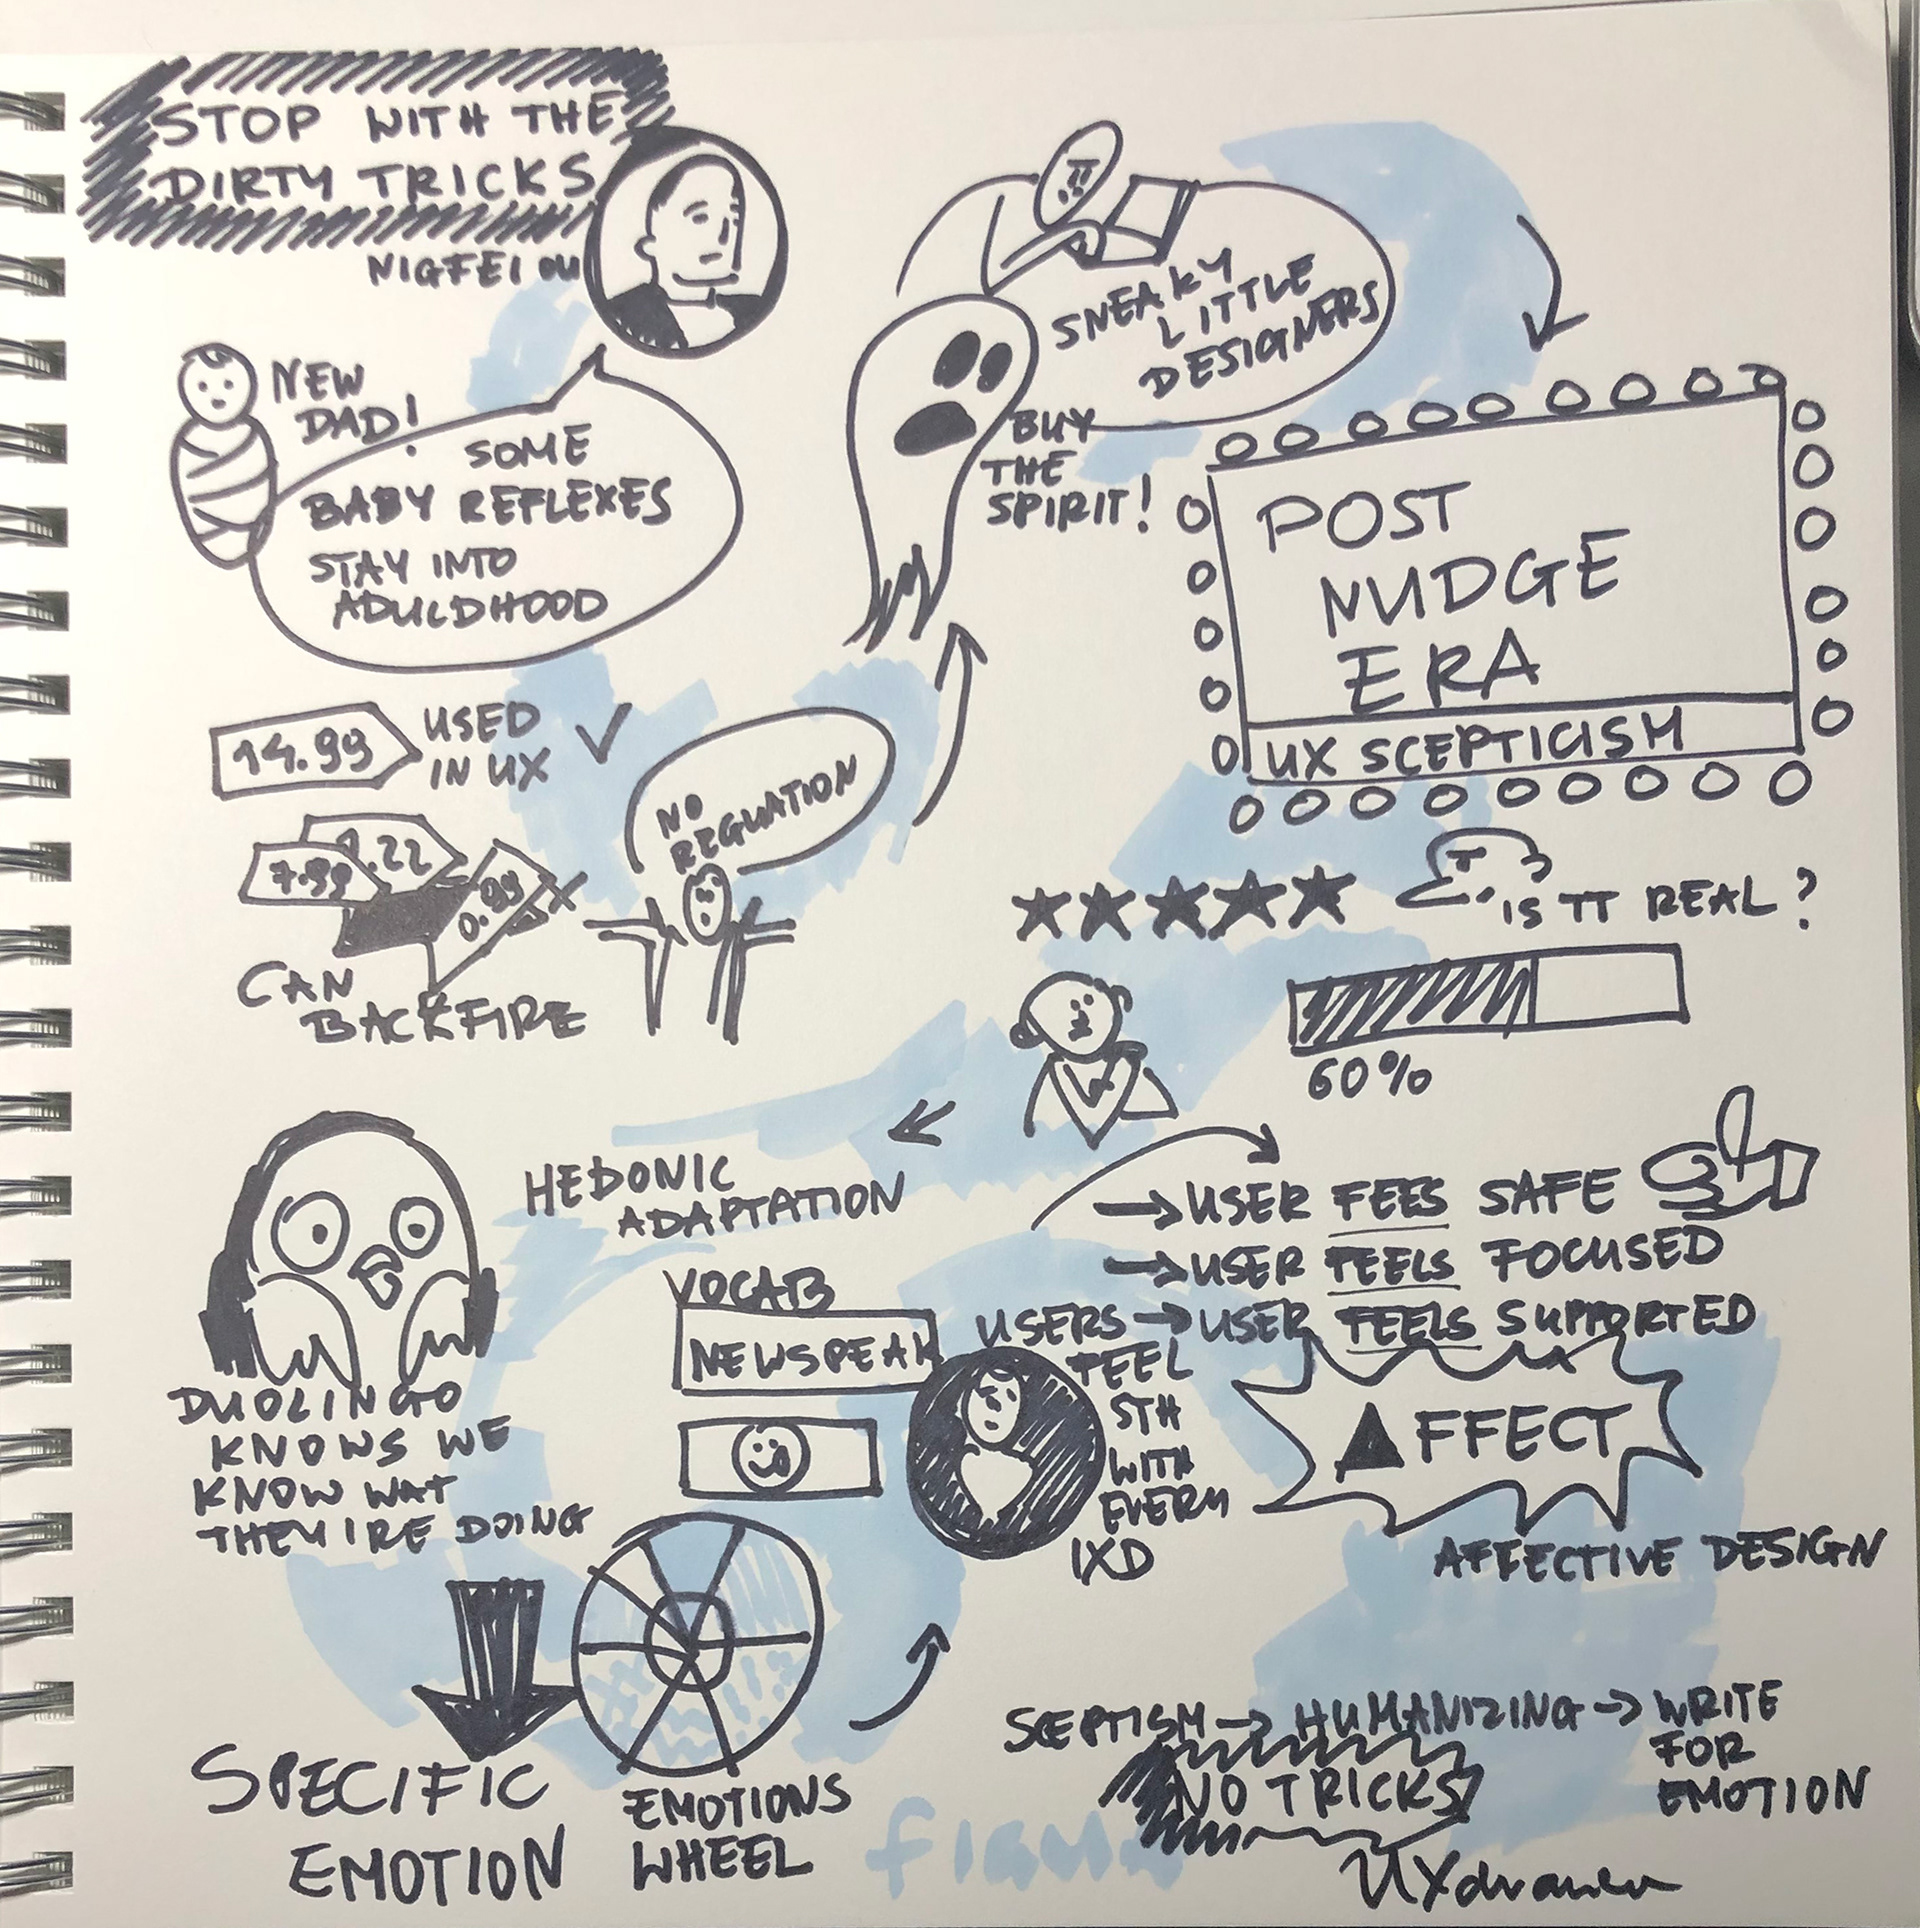 STOP WITH THE
DIRTY TRICKS
NEW
DAD!
SOME
BABY REFLEXES
STAY INTO
ADULDHOOD
14.99
USED
IN UX
7.99
.22
0.99
CAN
BACKFIRE
NO
REGUATION
SNEAKY
LITTLE
DESIGNERS
BUY
THE
SPIRIT!
POST
NUDGE
ERA
UX SCEPTICISM
IS IT REAL?
60%
HEDONIC
ADAPTATION
DUOLINGO
KNOWS WE
KNOW WAT
THEY IRE DOING
SPECIFIC
EMOTION
EMOTIONS
WHEEL
VOCAB
NEWSPEAK
USERS
FEEL
STH
WITH
EVERY
IXD
→ USER FEES SAFE
→ USER FEELS FOCUSED
→ USER FEELS SUPPORTED
AFFECT
AFFECTIVE DESIGN
SCEPTISM → HUMANIZING → WRITE
FOR
EMOTION
NO TRICKS